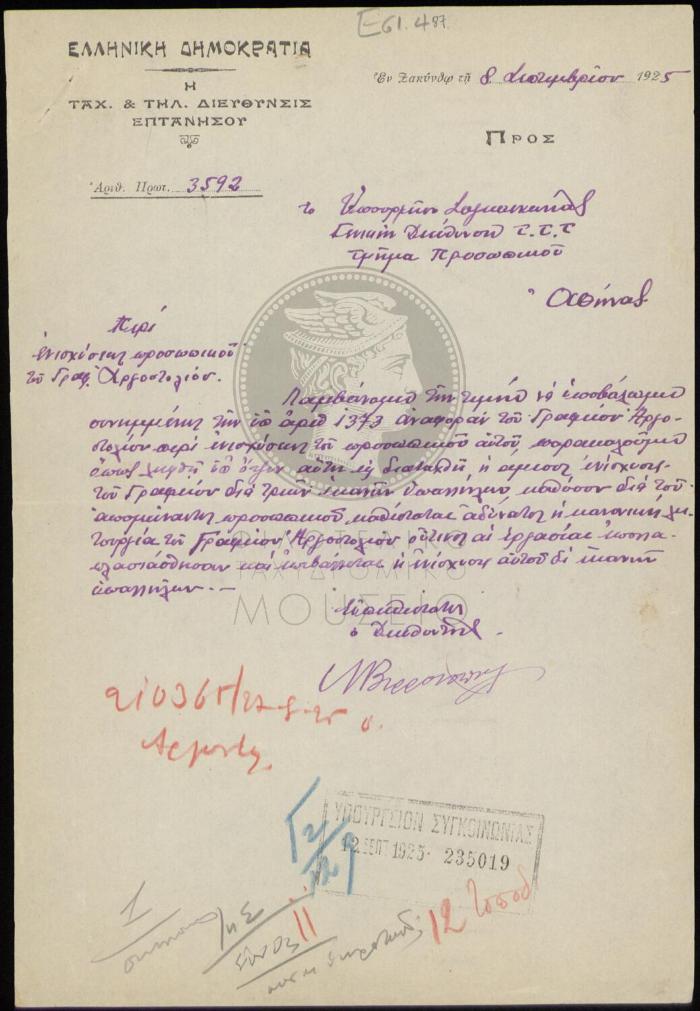 Ε61.487
ΕΛΛΗΝΙΚΗ ΔΗΜΟΚΡΑΤΙΑ
Η
ΤΑΧ. & ΤΗΛ. ΔΙΕΥΘΥΝΣΙΣ
ΕΠΤΑΝΗΣΟΥ
Ἐν Ζακύνθῳ τῇ 8 Σεπτεμβρίου 1925
ΠΡΟΣ
Ἀριθ. Πρωτ. 3592
το Υπουργείον Συγκοινωνίας
Γενικήν Διεύθυνσιν Τ.Τ.Τ
τμήμα προσωπικού
Αθήνας
Περί
ενισχύσεως προσωπικού
του Γραφ. Αργοστολίου.
Λαμβάνομεν την τιμήν να υποβάλωμεν
συνημμένως την υπ αριθ 1373 αναφοράν του Γραφείου Αργο-
στολίου περί ενισχύσεως του προσωπικού αυτού, παρακαλούμεν
όπως ληφθή υπ όψιν αύτη και διαταχθή η άμεσος ενίσχυσις
του Γραφείου διά τριών ικανών υπαλλήλων, καθόσον διά του
απομείναντος προσωπικού καθίσταται αδύνατος η κανονική λει-
τουργία του Γραφείου Αργοστολίου ούτινος αι εργασίαι επολλα-
πλασιάσθησαν και επιβάλλεται η ενίσχυσις αυτού δι ικανών
υπαλλήλων.
Ευπειθέστατος
ο Διευθυντής
ΦΙΛΟΤΕΛΙΚΟ
ΤΑΧΥΔΡΟΜΙΚΟ
ΜΟΥΣΕΙΟ
ΥΠΟΥΡΓΕΙΟΝ ΣΥΓΚΟΙΝΩΝΙΑΣ
12 ΣΕΠΤ 1925 235019
12/9
11
12